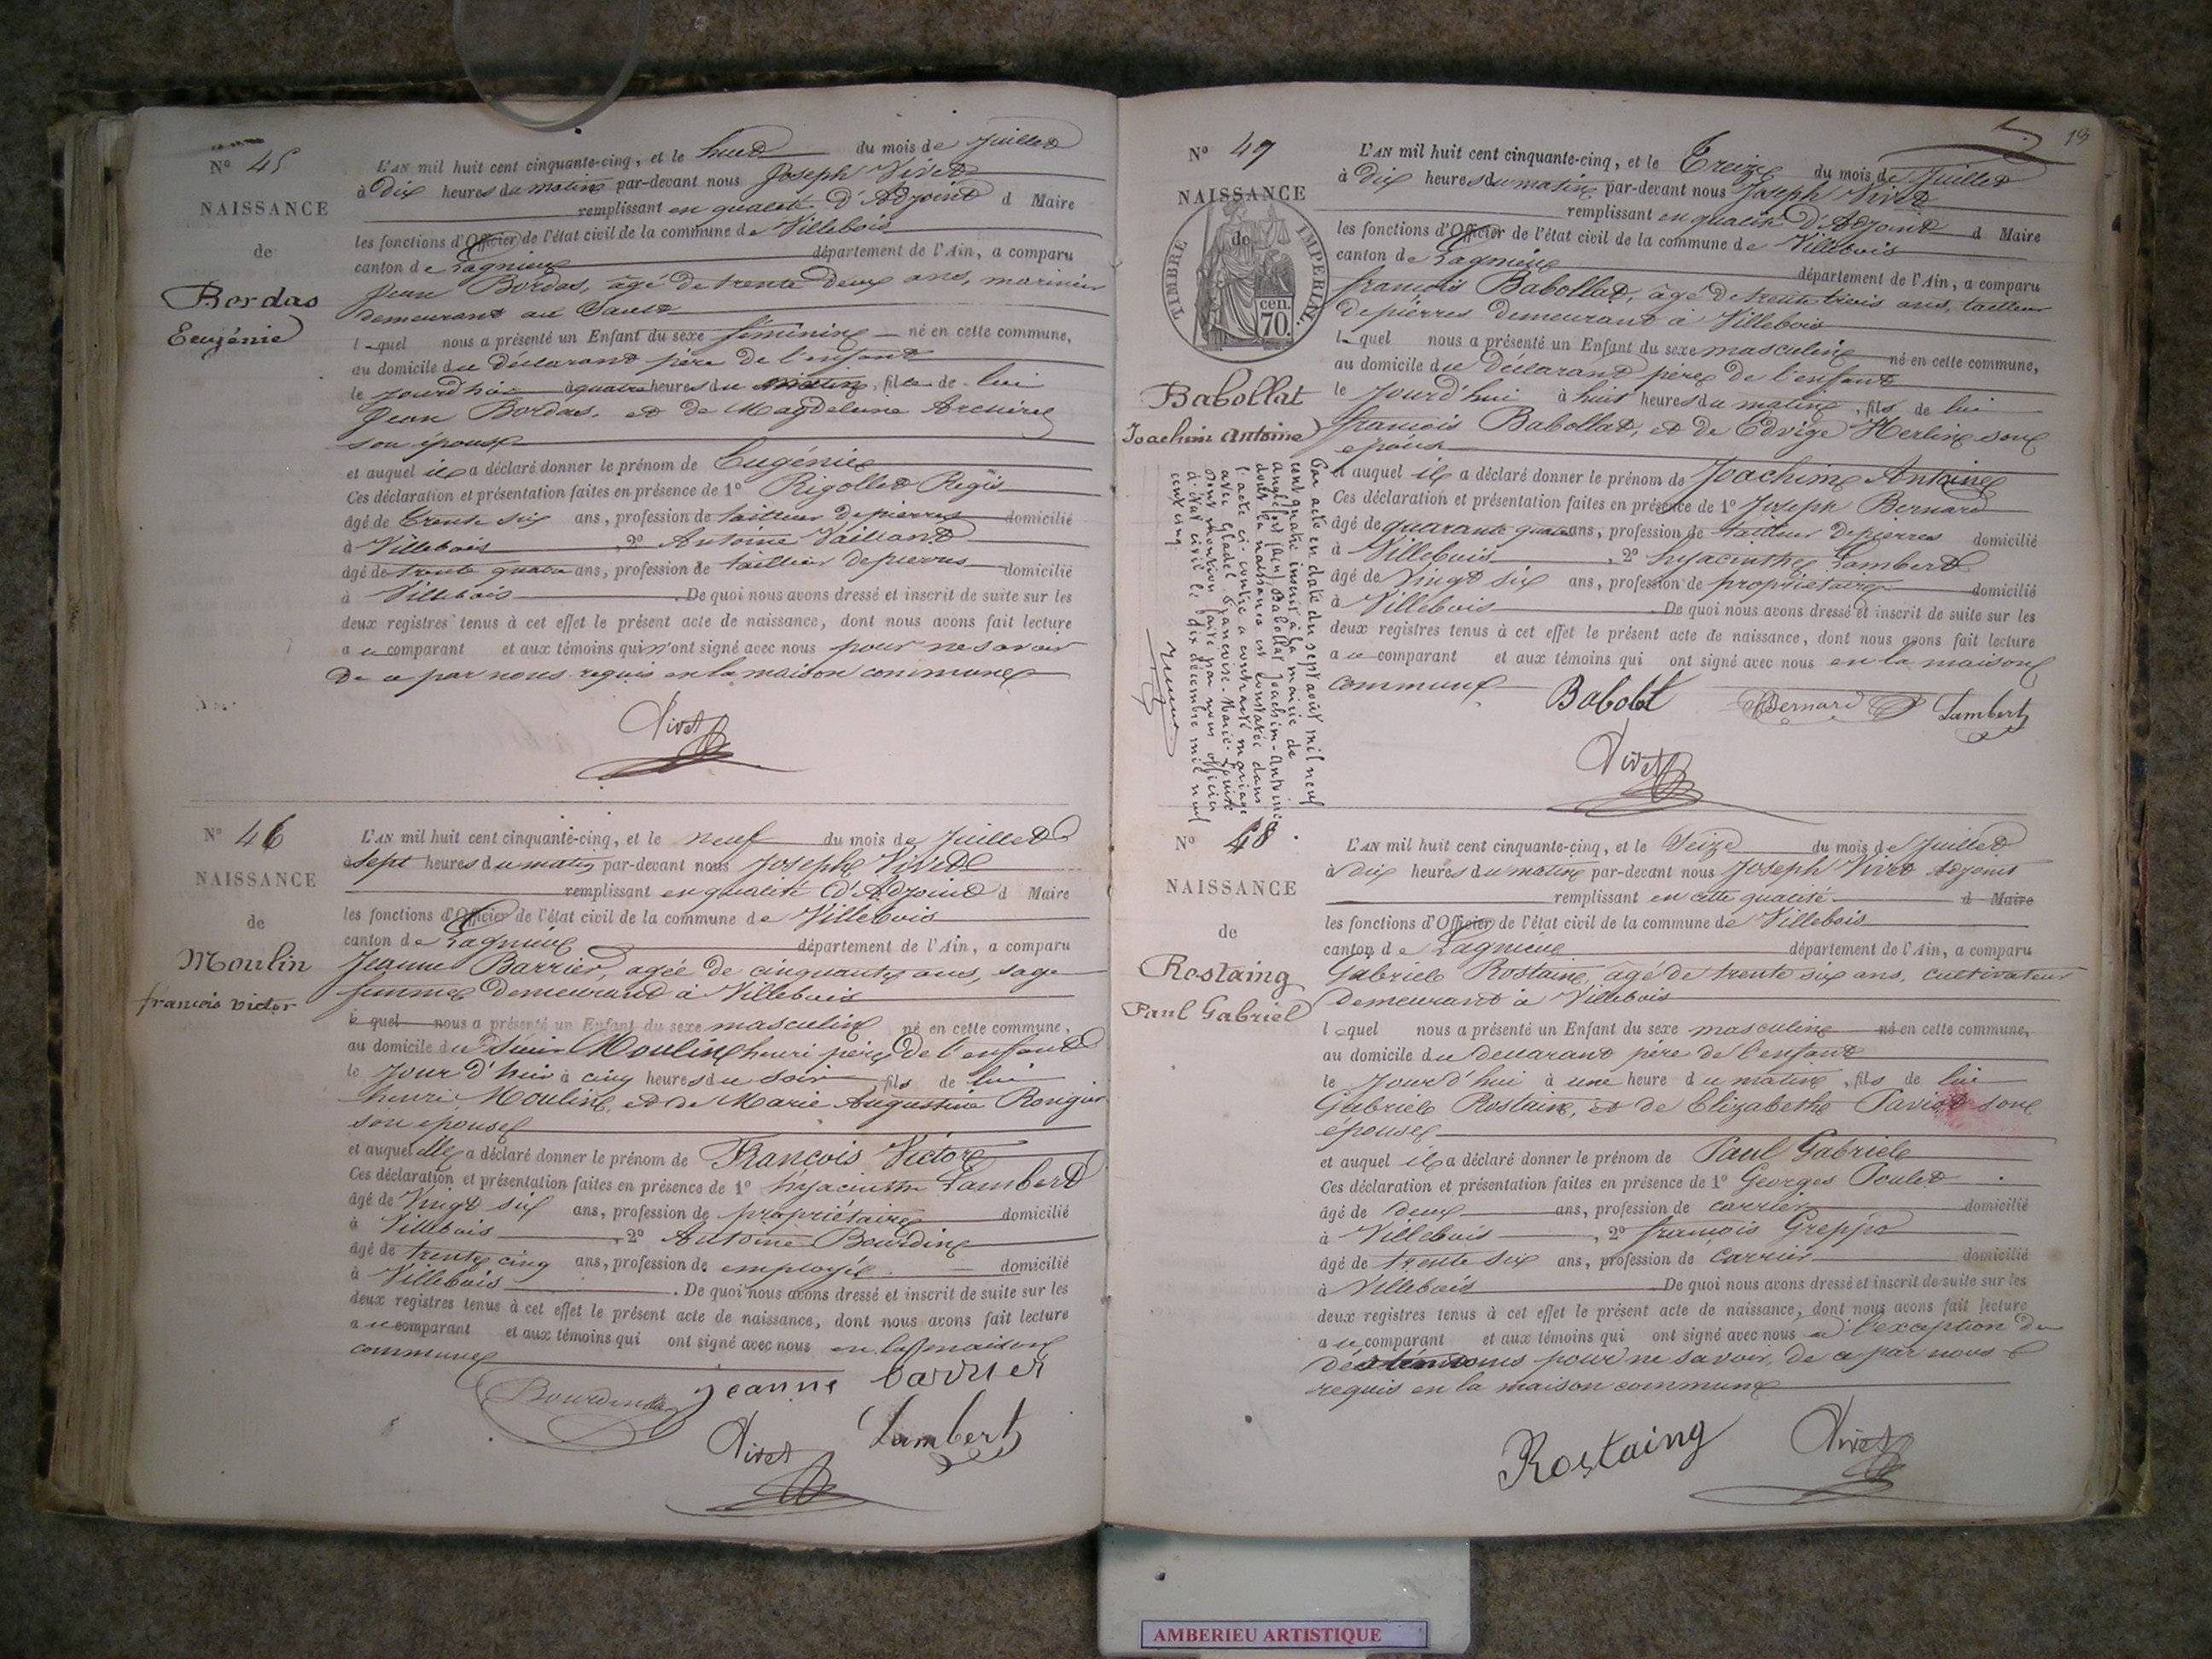 N° 45
NAISSANCE
de
Bordas
Eugénie
L'AN mil huit cent cinquante-cinq, et le huit du mois de Juillet
à Dix heures du matin par-devant nous Joseph Vivet
remplissant en qualité d'Adjoint d Maire
les fonctions d'Officier de l'état civil de la commune de Villebois
canton de Lagnieu département de l'Ain, a comparu
Jean Bordas, âgé de trente deux ans, marinier
demeurant au Sault
l quel nous a présenté un Enfant du sexe féminin né en cette commune,
au domicile du déclarant père de l'enfant
le jourd'hui à quatre heures du matin, fille de lui
Jean Bordas, et de Magdeleine
son épouse
et auquel il a déclaré donner le prénom de Eugénie
Ces déclaration et présentation faites en présence de 1° Rigollet Régis
âgé de trente six ans, profession de tailleur de pierres domicilié
à Villebois, 2° Antoine Vaillant
âgé de trente quatre ans, profession de tailleur de pierres domicilié
à Villebois. De quoi nous avons dressé et inscrit de suite sur les
deux registres tenus à cet effet le présent acte de naissance, dont nous avons fait lecture
au comparant et aux témoins qui n'ont signé avec nous pour ne savoir
de ce par nous requis en la maison commune
Vivet
N° 46
NAISSANCE
de
Moulin
françois victor
L'AN mil huit cent cinquante-cinq, et le neuf du mois de Juillet
à sept heures du matin par-devant nous Joseph Vivet
remplissant en qualité d'Adjoint d Maire
les fonctions d'Officier de l'état civil de la commune de Villebois
canton de Lagnieu département de l'Ain, a comparu
Jeanne Barrier, agée de cinquante ans, sage
femme demeurant à Villebois
l quel nous a présenté un Enfant du sexe masculin né en cette commune,
au domicile du sieur Moulin henri père de l'enfant
le jour d'hier à cinq heures du soir, fils de lui
henri Moulin, et de Marie Augustine Rougier
son épouse
et auquel elle a déclaré donner le prénom de François Victor
Ces déclaration et présentation faites en présence de 1° hyacinthe Lambert
âgé de vingt six ans, profession de propriétaire domicilié
à Villebois, 2° Antoine Bourdin
âgé de trente cinq ans, profession de employé domicilié
à Villebois. De quoi nous avons dressé et inscrit de suite sur les
deux registres tenus à cet effet le présent acte de naissance, dont nous avons fait lecture
au comparant et aux témoins qui ont signé avec nous en la maison
commune
Bourdin jeanne barrier
Vivet Lambert
19
N° 47
NAISSANCE
de
TIMBRE IMPERIAL
cen.
70.
Babollat
Joachim Antoine
L'AN mil huit cent cinquante-cinq, et le Treize du mois de Juillet
à dix heures du matin par-devant nous Joseph Vivet
remplissant en qualité d'Adjoint d Maire
les fonctions d'Officier de l'état civil de la commune de Villebois
canton de Lagnieu département de l'Ain, a comparu
françois Babollat, âgé de trente trois ans, tailleur
de pierres demeurant à Villebois
l quel nous a présenté un Enfant du sexe masculin né en cette commune,
au domicile du déclarant père de l'enfant
le jourd'hui à huit heures du matin, fils de lui
françois Babollat, et de Edvige Herlin son
épouse
et auquel il a déclaré donner le prénom de Joachim Antoine
Ces déclaration et présentation faites en présence de 1° Joseph Bernard
âgé de quarante quatre ans, profession de tailleur de pierres domicilié
à Villebois, 2° hyacinthe Lambert
âgé de vingt six ans, profession de propriétaire domicilié
à Villebois. De quoi nous avons dressé et inscrit de suite sur les
deux registres tenus à cet effet le présent acte de naissance, dont nous avons fait lecture
au comparant et aux témoins qui ont signé avec nous en la maison
commune Babolat Bernard Lambert
Vivet
Par acte en date du sept août mil neuf
cent quatre inscrit à la mairie de
(ain) Babollat Joachim-Antoine
dont la naissance est constatée dans
l'acte ci-contre a contracté mariage
avec Gladel Françoise-Marie-Louise
Dont mention faite par nous officier
d'état civil le dix décembre mil neuf
cent cinq
N° 48
NAISSANCE
de
Rostaing
Paul Gabriel
L'AN mil huit cent cinquante-cinq, et le Seize du mois de Juillet
à dix heures du matin par-devant nous Joseph Vivet Adjoint
remplissant en cette qualité d Maire
les fonctions d'Officier de l'état civil de la commune de Villebois
canton de Lagnieu département de l'Ain, a comparu
Gabriel Rostaing, âgé de trente six ans, cultivateur
demeurant à Villebois
l quel nous a présenté un Enfant du sexe masculin né en cette commune,
au domicile du déclarant père de l'enfant
le jourd'hui à une heure du matin, fils de lui
Gabriel Rostain, et de Elizabeth Paviot son
épouse
et auquel il a déclaré donner le prénom de Paul Gabriel
Ces déclaration et présentation faites en présence de 1° Georges Poulet
âgé de deux ans, profession de carrier domicilié
à Villebois, 2° françois Greppo
âgé de trente six ans, profession de carrier domicilié
à Villebois. De quoi nous avons dressé et inscrit de suite sur les
deux registres tenus à cet effet le présent acte de naissance, dont nous avons fait lecture
au comparant et aux témoins qui ont signé avec nous à l'exception de
des témoins pour ne savoir, de ce par nous
requis en la maison commune
Rostaing Vivet
AMBERIEU ARTISTIQUE